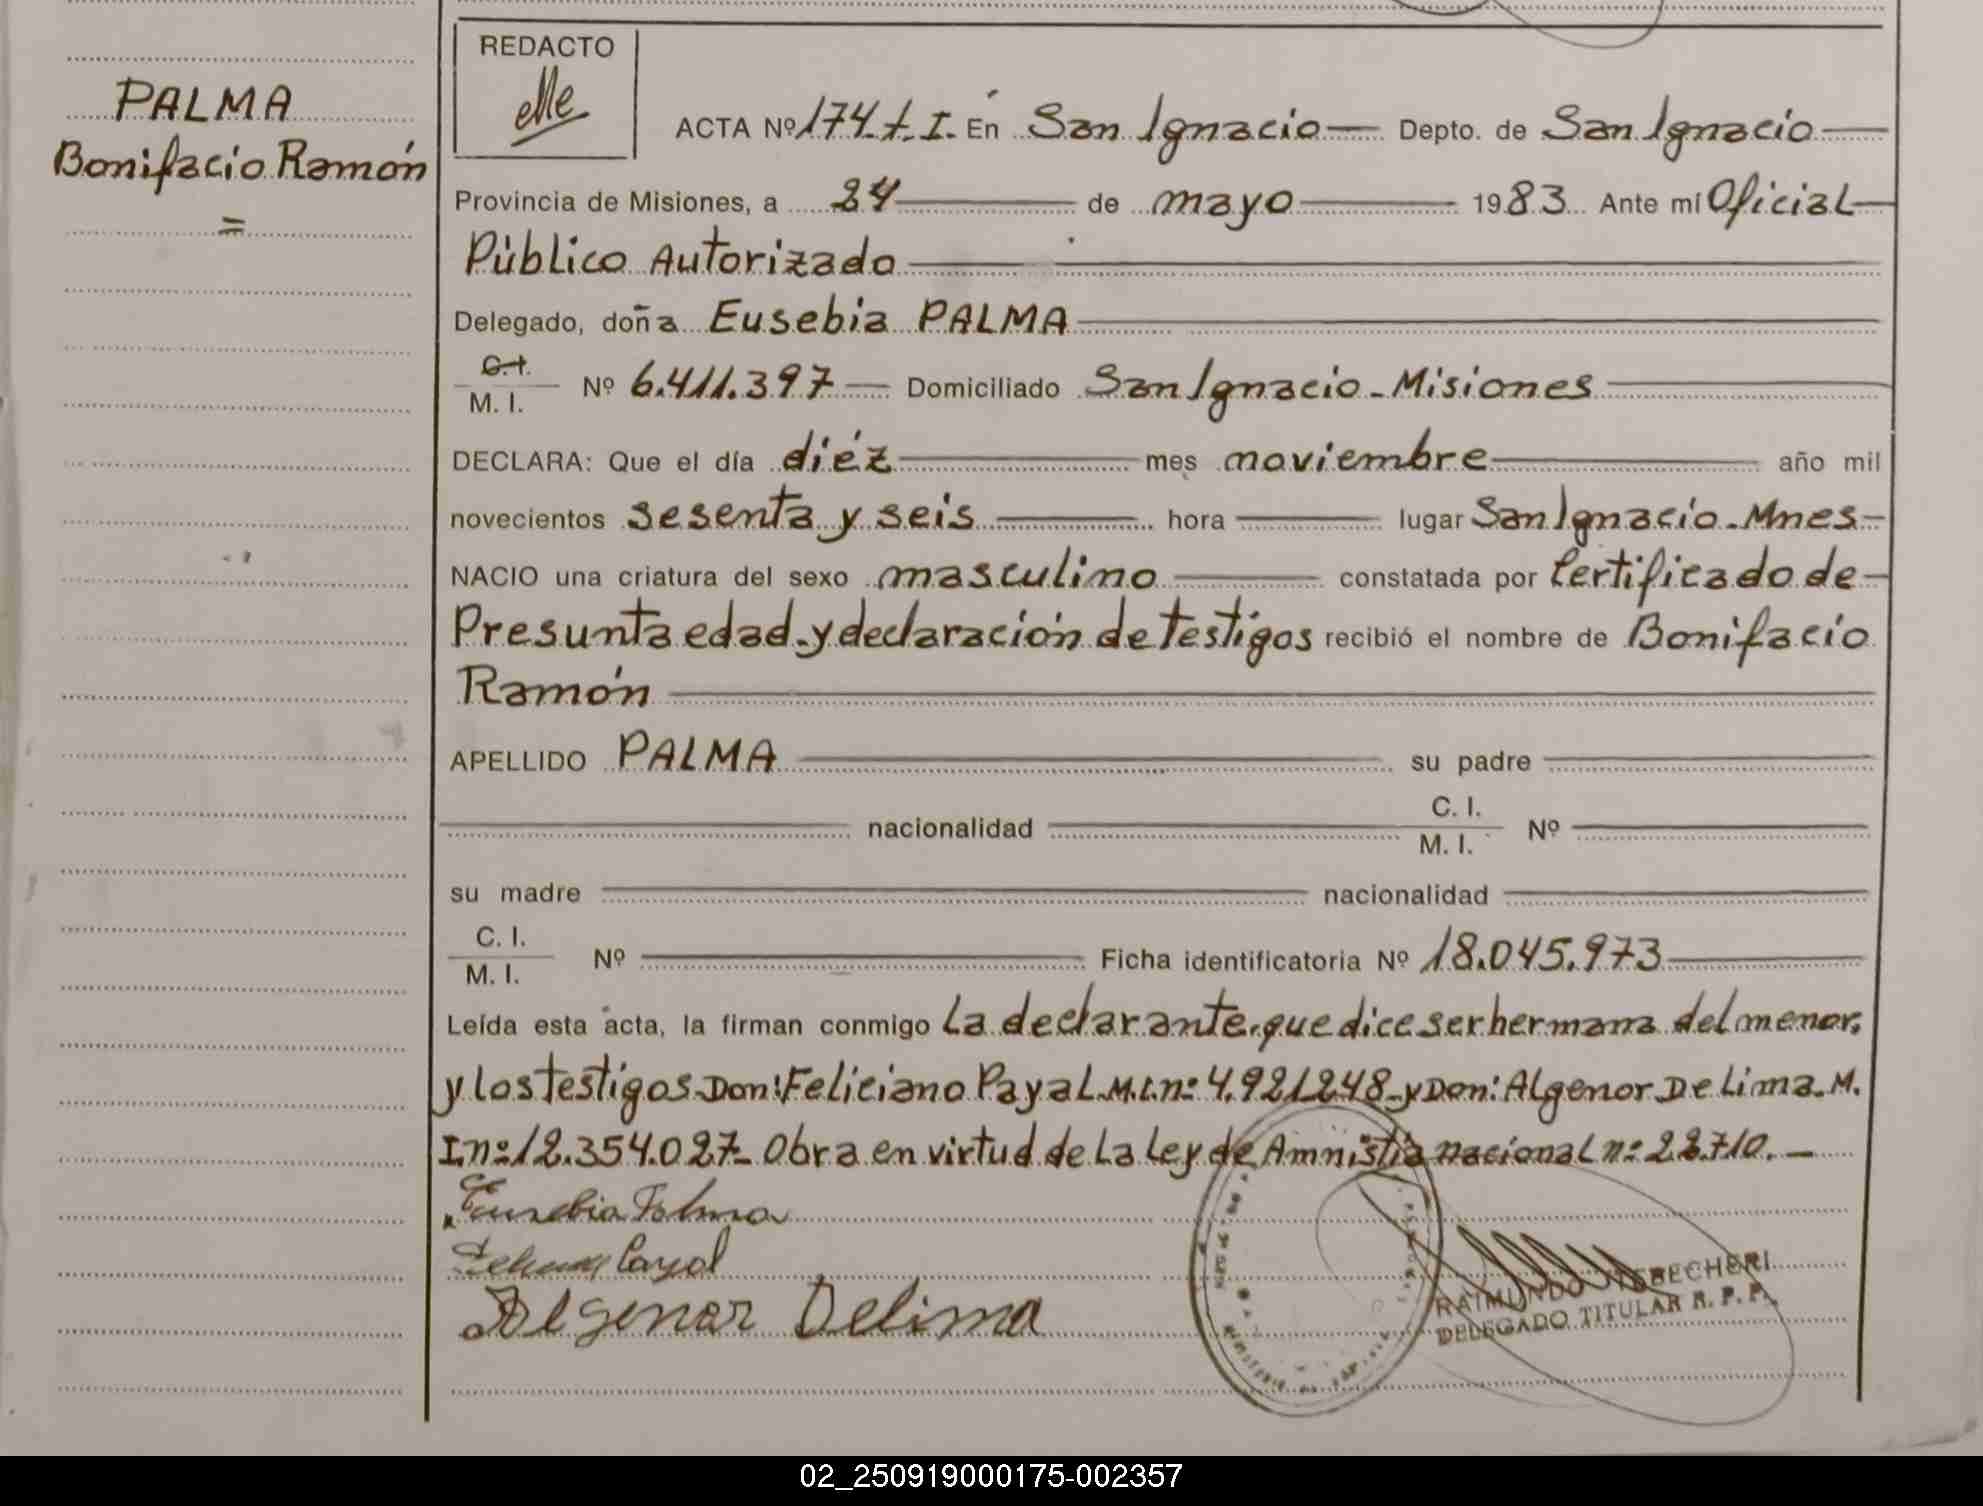 PALMA
Bonifacio Ramón
=
REDACTO
ACTA Nº 174. t. I. En San Ignacio Depto. de San Ignacio
Provincia de Misiones, a 24 de mayo 1983 Ante mí Oficial
Público Autorizado
Delegado, doña Eusebia PALMA
C.I.
M. I. Nº 6.411.397 Domiciliado San Ignacio - Misiones
DECLARA: Que el día diéz mes noviembre año mil
novecientos sesenta y seis hora lugar San Ignacio - Mnes
NACIO una criatura del sexo masculino constatada por Certificado de
Presunta edad - y declaración de testigos recibió el nombre de Bonifacio
Ramón
APELLIDO PALMA su padre
nacionalidad C. I.
M. I. Nº
su madre nacionalidad
C. I.
M. I. Nº Ficha identificatoria Nº 18.045.973
Leída esta acta, la firman conmigo La declarante, que dice ser hermana del menor,
y los testigos Don: Feliciano Payal M.I. nº 4.921248 - y Don: Algenor De Lima - M.
I. nº 12.354.027 - Obra en virtud de La Ley de Amnistia nacional nº 22.710. -
Eusebia Palma
Payal
Algenor Delima
RAIMUNDO
DELEGADO TITULAR R. P. P.
02_250919000175-002357